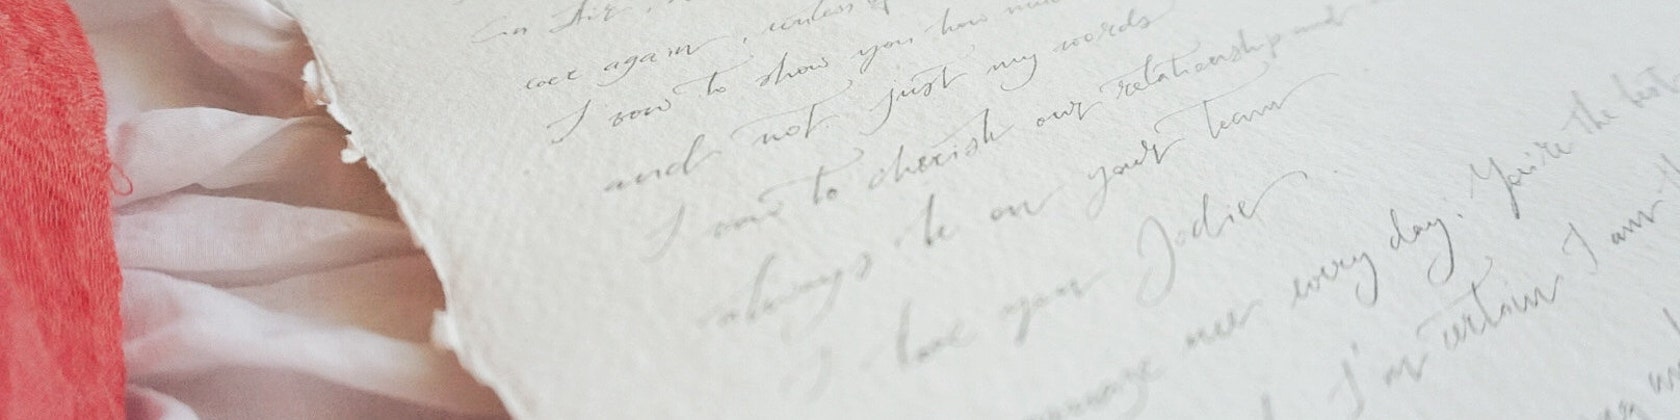 again, unless
I vow to show you how
and not just my words
I vow to cherish our relationship and
always be on your team
I love you Jodie
me every day. You're the best
I'm certain I am